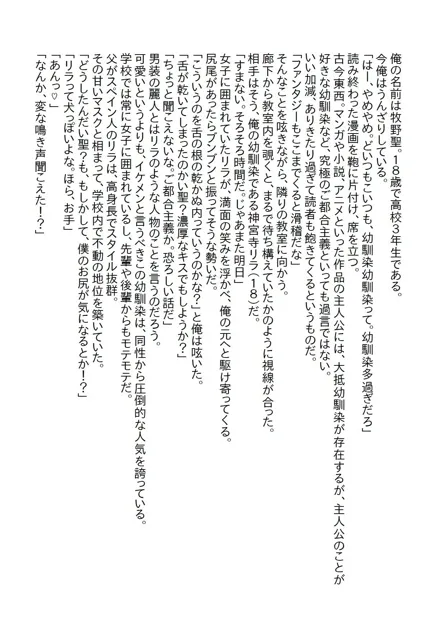 俺の名前は牧野聖。18歳で高校3年生である。
今俺はうんざりしている。
「はー、やめやめ。どいつもこいつも、幼馴染幼馴染って。幼馴染多過ぎだろ」
読み終わった漫画を鞄に片付け、席を立つ。
古今東西。マンガや小説、アニメといった作品の主人公には、大抵幼馴染が存在するが、主人公のことが
好きな幼馴染など、究極のご都合主義といっても過言ではない。
いい加減、ありきたり過ぎて読者も飽きてくるというものだ。
「ファンタジーもここまでくると滑稽だな」
そんなことを呟きながら、隣りの教室に向かう。
廊下から教室内を覗くと、まるで待ち構えていたかのように視線が合った。
相手はそう、俺の幼馴染である神宮寺リラ(18)だ。
「すまない。そろそろ時間だ。じゃあまた明日」
女子に囲まれていたリラが、満面の笑みを浮かべ、俺の元へと駆け寄ってくる。
尻尾があったらブンブンと振ってそうな勢いだ。
「こういうのを舌の根の乾かぬ内っていうのかな?」と俺は呟いた。
「舌が乾いてしまったのかい聖?濃厚なキスでもしようか?」
「ちょっと聞こえないな。ご都合主義か。恐ろしい話だ」
男装の麗人とはリラのような人物のことを言うのだろう。
可愛いというよりも、イケメンと言うべきこの幼馴染は、同性から圧倒的な人気を誇っている。
学校では常に女子に囲まれているし、先輩や後輩からもモテモテだ。
父がスペイン人のリラは、高身長でスタイル抜群。
その甘いマスクと相まって、学校内で不動の地位を築いていた。
「どうしたんだい聖?も、もしかして、僕のお尻が気になるとか!?」
「リラって犬っぽいよな。ほら、お手」
「あんっ♡」
「なんか、変な鳴き声聞こえた!?」